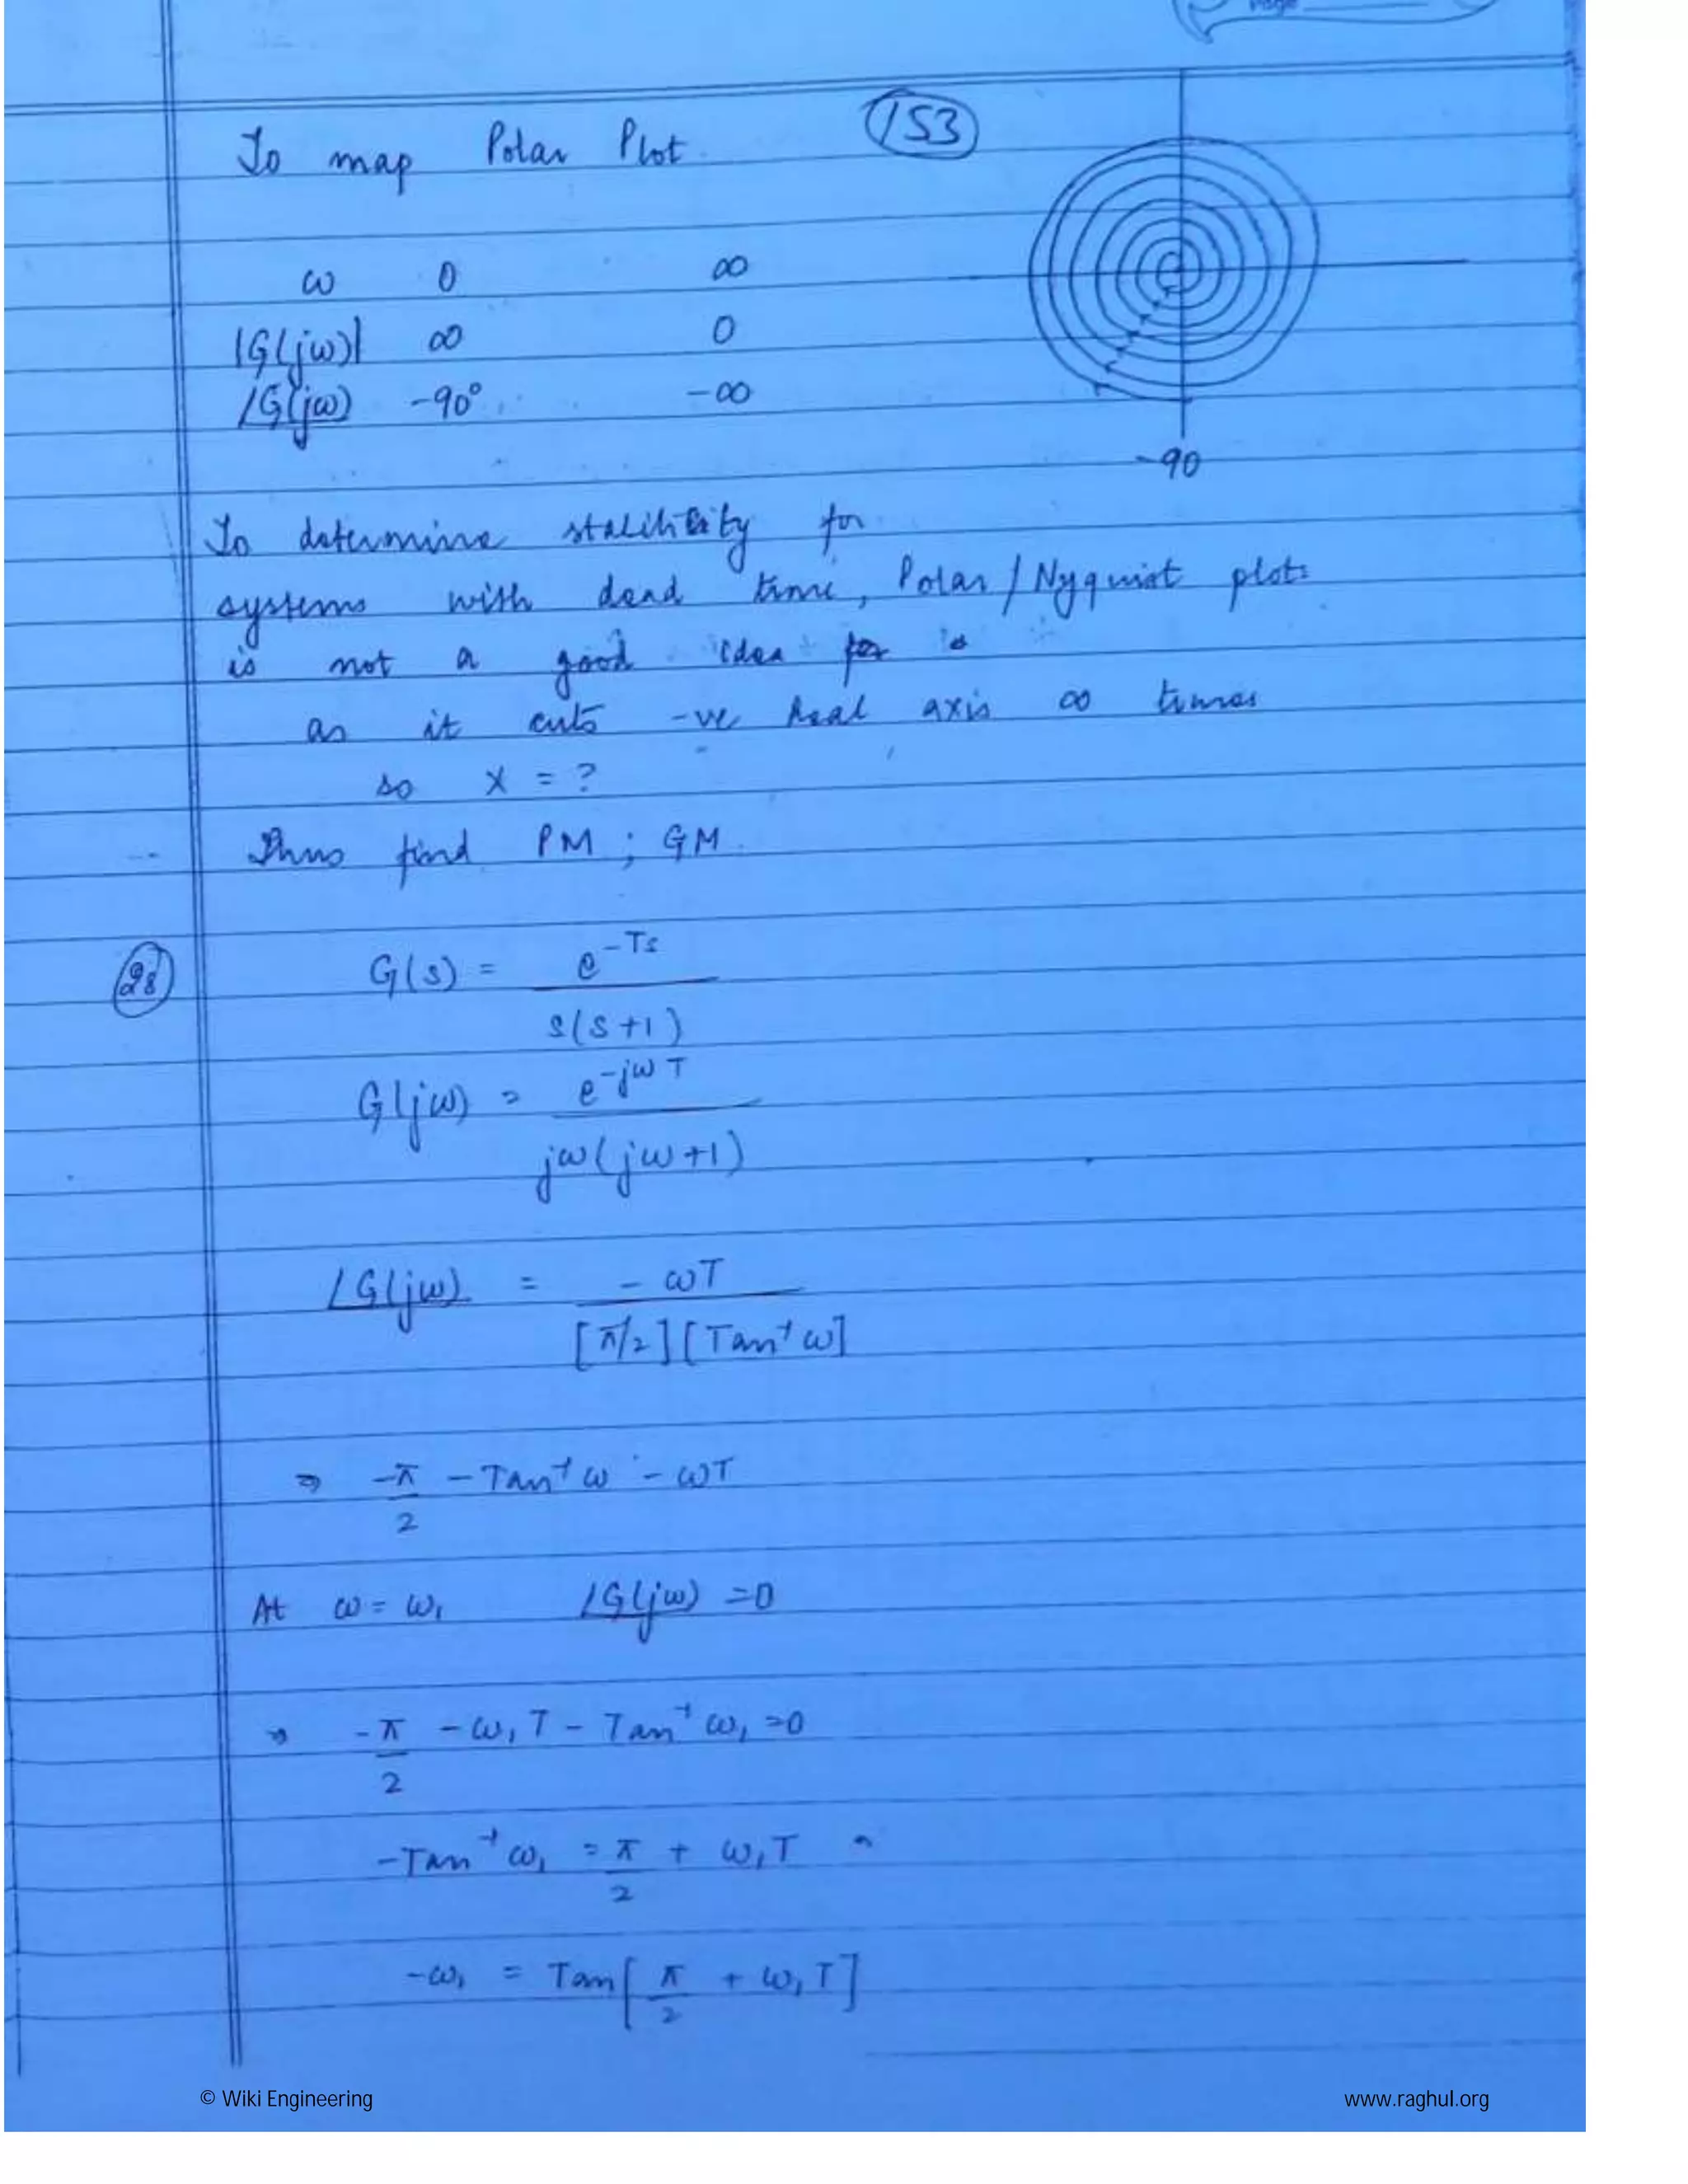 153
To map Polar Plot
ω 0 ∞
|G(jω)| ∞ 0
∠G(jω) -90° -∞
-90
To determine for
systems with dead time, Polar / Nyquist plots
is not a good idea for
as it cuts -ve Real axis ∞ times
so X = ?
Thus find PM ; GM.
28
G(s) = e^-Ts / s(s+1)
G(jω) = e^-jωT / jω(jω+1)
∠G(jω) = -ωT / [π/2][Tan⁻¹ω]
⇒ -π/2 - Tan⁻¹ω - ωT
At ω = ω₁ ∠G(jω) = 0
⇒ -π/2 - ω₁T - Tan⁻¹ω₁ = 0
-Tan⁻¹ω₁ = π/2 + ω₁T
-ω₁ = Tan[π/2 + ω₁T]
© Wiki Engineering www.raghul.org